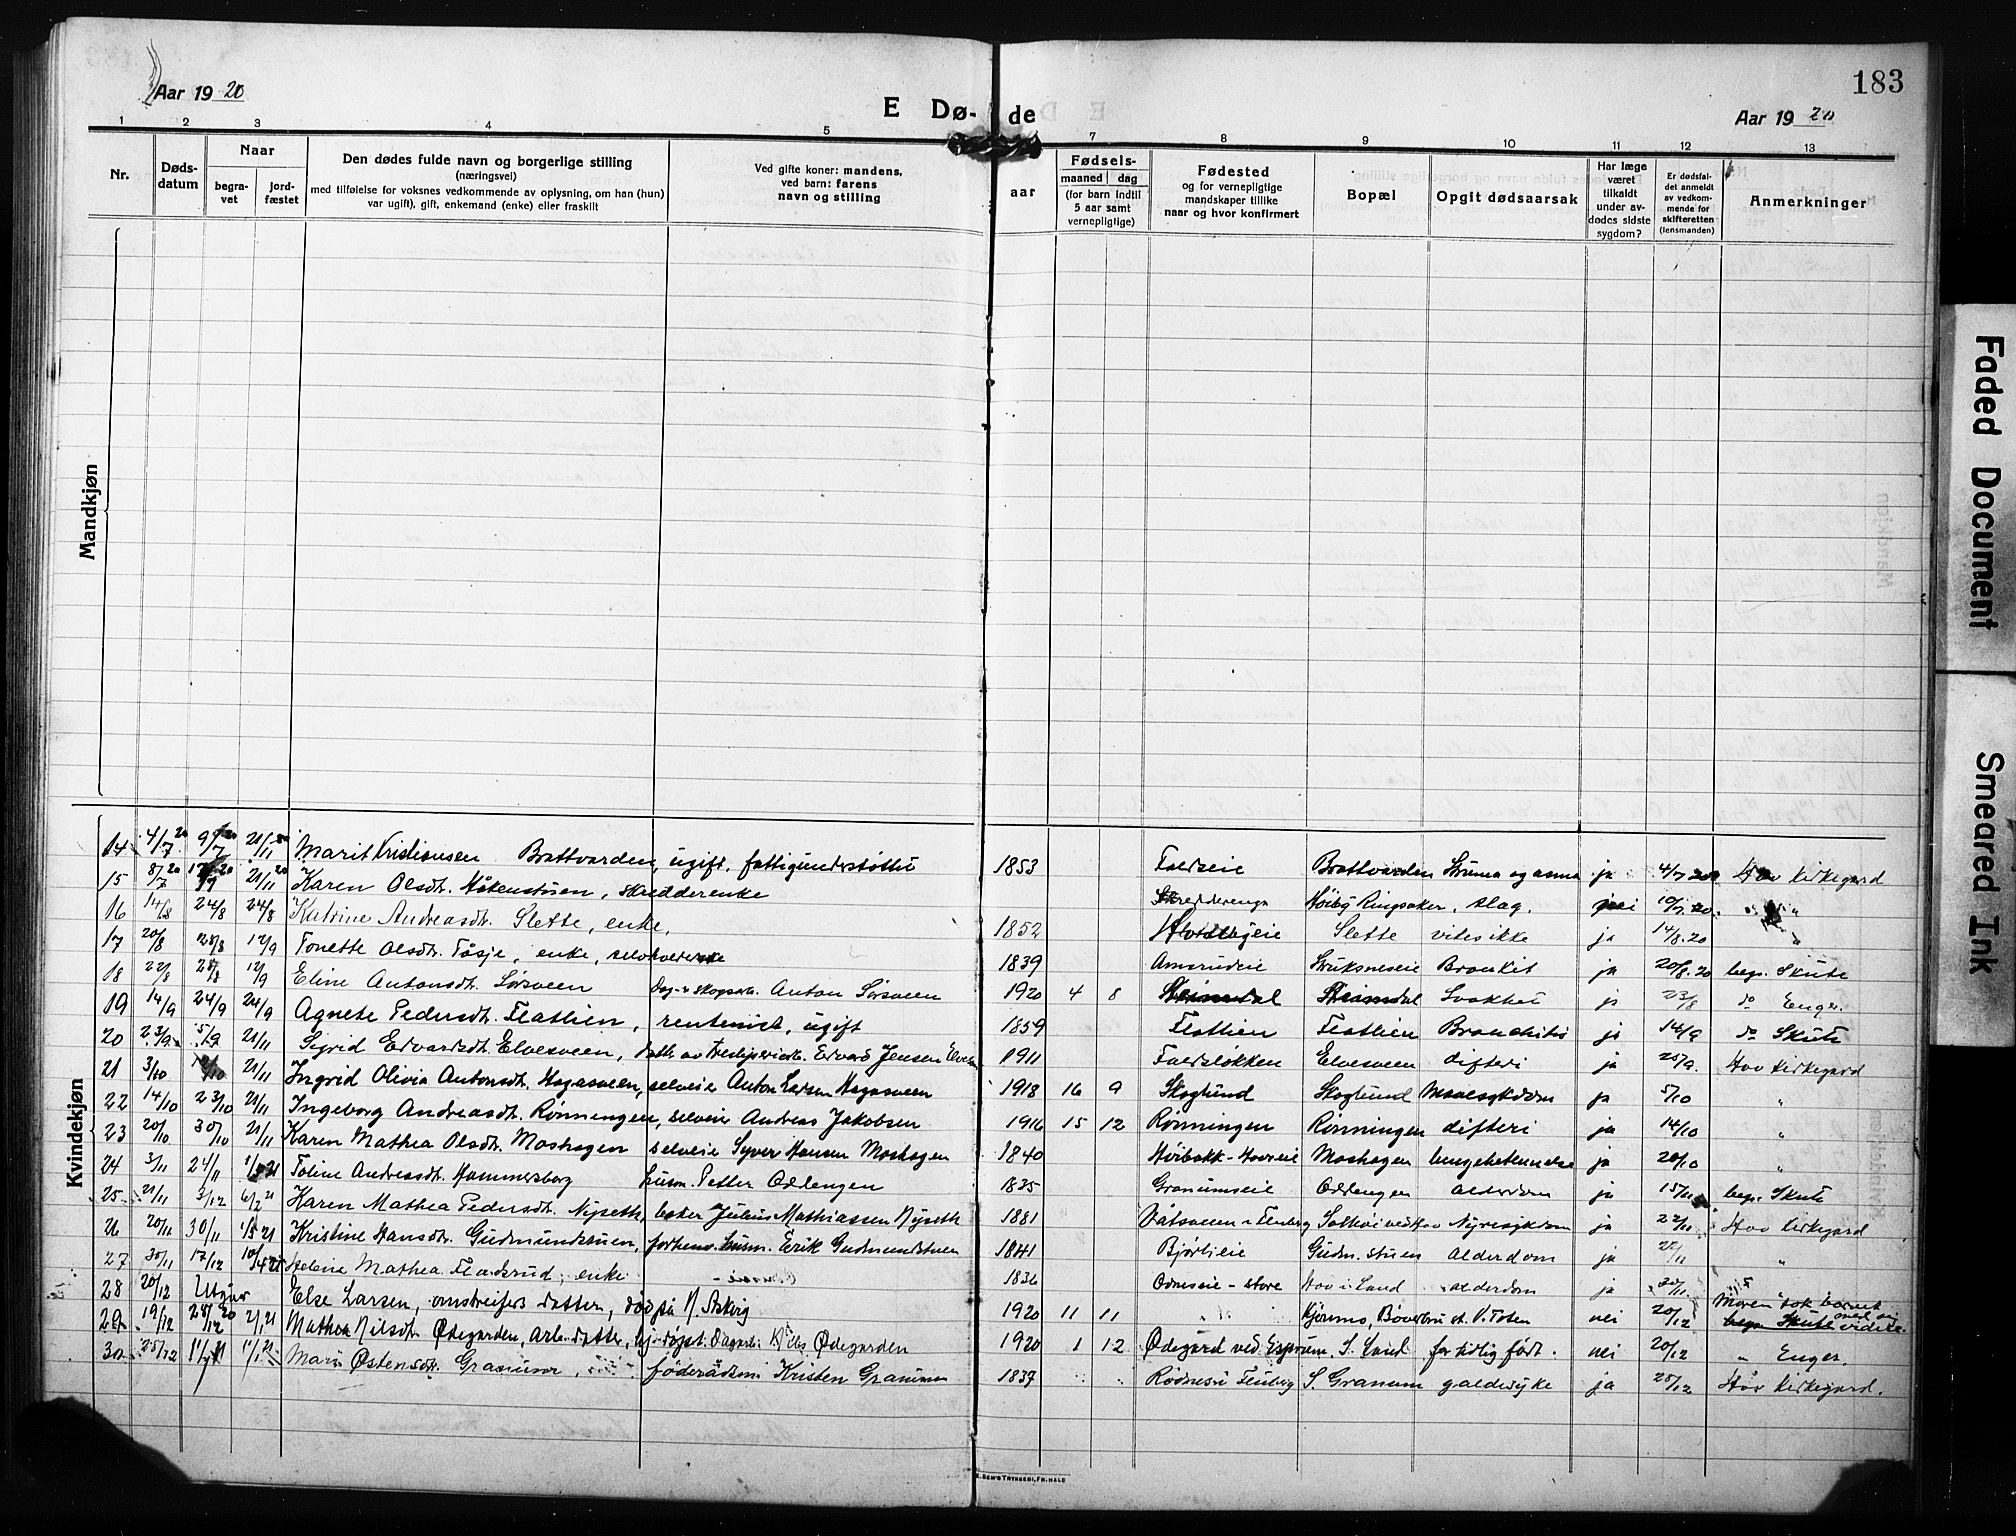 Aar 1920
E Dø-
de
Aar 1920
183
1 2 3 4 5 7 8 9 10 11 12 13
Nr.
Døds-
datum
Naar
begra-
vet
jord-
fæstet
Den dødes fulde navn og borgerlige stilling
(næringsvei)
med tilføielse for voksnes vedkommende av oplysning, om han (hun)
var ugift), gift, enkemand (enke) eller fraskilt
Ved gifte koner: mandens,
ved barn: farens
navn og stilling
aar
Fødsels-
maaned dag
(for barn indtil
5 aar samt
vernepligtige)
Fødested
og for vernepligtige
mandskaper tillike
naar og hvor konfirmert
Bopæl
Opgit dødsaarsak
Har læge
været
tilkaldt
under av-
dødes sidste
sygdom?
Er dødsfal-
det anmeldt
av vedkom-
mende for
skifteretten
(lensmanden)
Anmerkninger
Mandkjøn
Kvindekjøn
14 4/7 20 9/7 20 21/11 20 Marit Kristiansen Brattvarden, ugift, fattigunderstøttet 1853 Faldseie Brattvarden Struma og asma ja 4/7 20 Hov kirkegard
15 8/7 20 21/11 20 Karen Olsdt. Håkenstuen, skredderenke Skredderenga Høiby Ringsaker slag. nei
16 14/8 24/8 24/8 Katrine Andreasdt. Slette, enke, 1852 Slette vites ikke ja 14/8.20 "
17 20/8 28/8 12/9 Tonette Olsdt. Tåsje, enke, 1839 Amsrudeie Bronkit ja 20/8.20 begr. Skute
18 22/8 28/8 12/9 Eline Antonsdt. Sørsveen Dag- & skogsarb. Anton Sørsveen 1920 4 8 Svakhet ja 23/8 do Enger.
19 14/9 24/9 24/9 Agnete Pedersdt. Flatlien, rentenist, ugift 1859 Flatlien Flatlien Bronchitis ja 14/9 do Skute
20 23/9 5/9 21/11 Sigrid Edvardsdt. Elvesveen, datter av Edvard Jensen 1911 Faldsløkken Elvesveen difteri ja 25/9. Hov kirkegard
21 3/10 21/11 Ingrid Olivia Antonsdt. Hagasveen, selveier Anton Larsen Hagasveen 1918 16 9 Skoglund Skoglund Mavesykdom ja 5/10 "
22 14/10 23/10 21/11 Ingeborg Andreasdt. Rønningen, selveier Andreas Jakobsen 1916 15 12 Rønningen Rønningen difteri ja 14/10 "
23 20/10 30/10 21/11 Karen Mathea Olsdt. Moshagen selveier Syver Hansen Moshagen 1840 Høibakk-Hovseie Moshagen lungebetendelse ja 20/10 "
24 3/11 24/11 Toline Andreasdt. Hammersberg husm. Petter Odlengen 1835 Granumseie Odlengen alderdom ja 15/11 begr. Skute
25 21/11 3/12 6/2 21 Karen Mathea Pedersdt. Nyseth baker Julius Mathiassen Nyseth 1881 Nyresykdom ja 22/11 Hov kirkegard
26 20/11 30/11 1/5 21 Kristine Hansdt. Gudmundstuen, forhenv. husm. Erik Gudmundstuen 1841 Bjørlieie Gudm. stuen alderdom ja 22/11 "
27 30/11 17/12 10/4 21 Helene Mathea Fladsrud, enke 1836 Odneseie - store Hov i Land alderdom ja 30/11
28 20/12 Else Larsen, omstreifers datter, 1920 11 11 V. Toten nei 20/12 Moren tok barnet med sig videre.
29 19/12 28/12 20 2/1 21 Mathea Nilsdt. Ødegarden, arb. datter, hj. døpt. Dagarb. Nils Ødegarden 1920 1 12 Ødegård ved Esperum, S. Land for tidlig født. nei 20/12 " Enger.
30 25/12 Mari Østensdt. Granum, føderådsm. Kristen Granum 1837 Rødnes i Fluberg S. Granum galdesyke ja 28/12 Hov kirkegard.
Faded Document
Smeared Ink